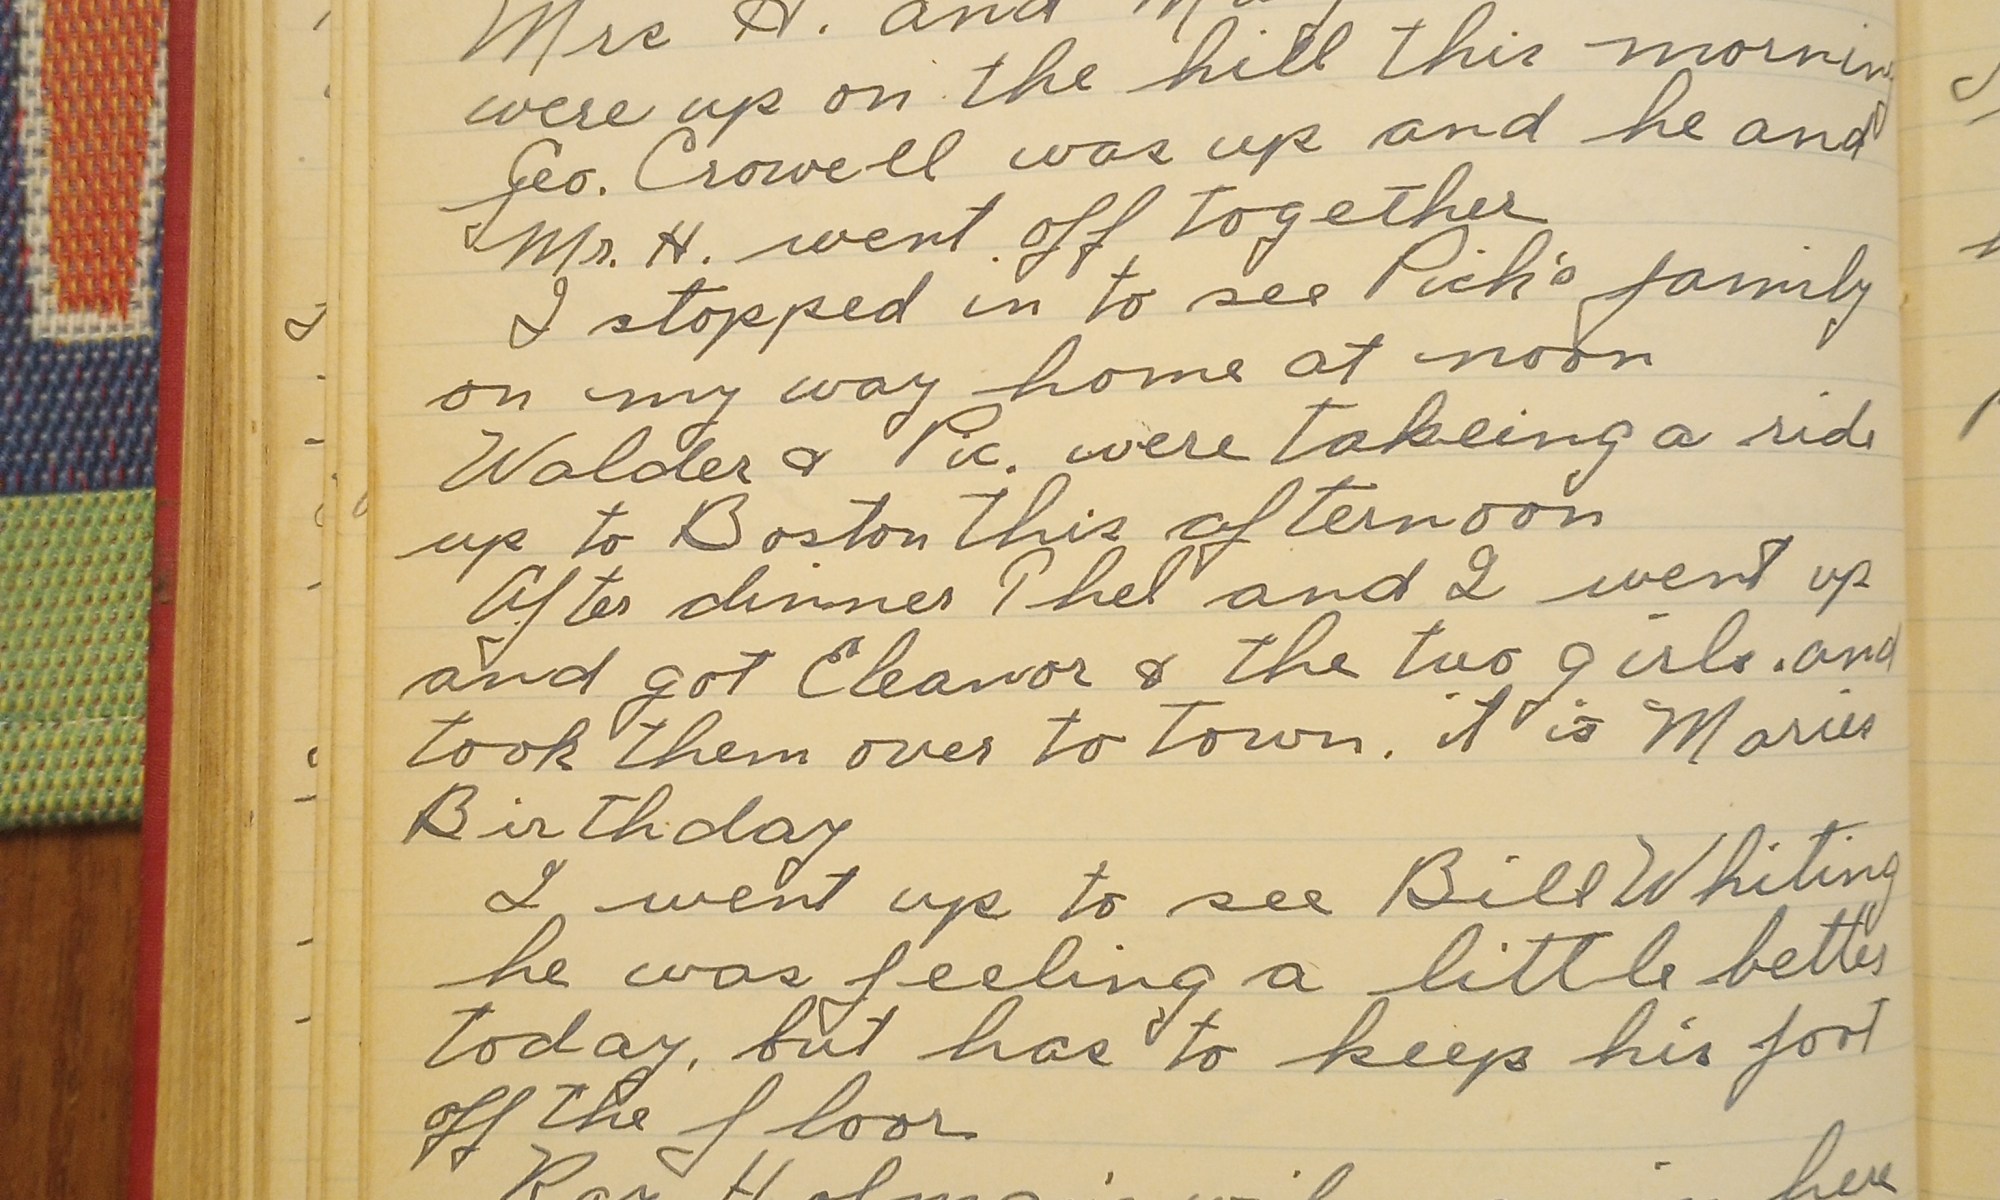 Mrs H. and
were up on the hill this morning
Geo. Crowell was up and he and
Mr. H. went off together
I stopped in to see Pick's family
on my way home at noon
Walder & Pic. were takeing a ride
up to Boston this afternoon
After dinner Phel and I went up
and got Eleanor & the two girls. and
took them over to town. it is Maries
Birthday
I went up to see Bill Whiting
he was feeling a little better
today, but has to keep his foot
off the floor
here